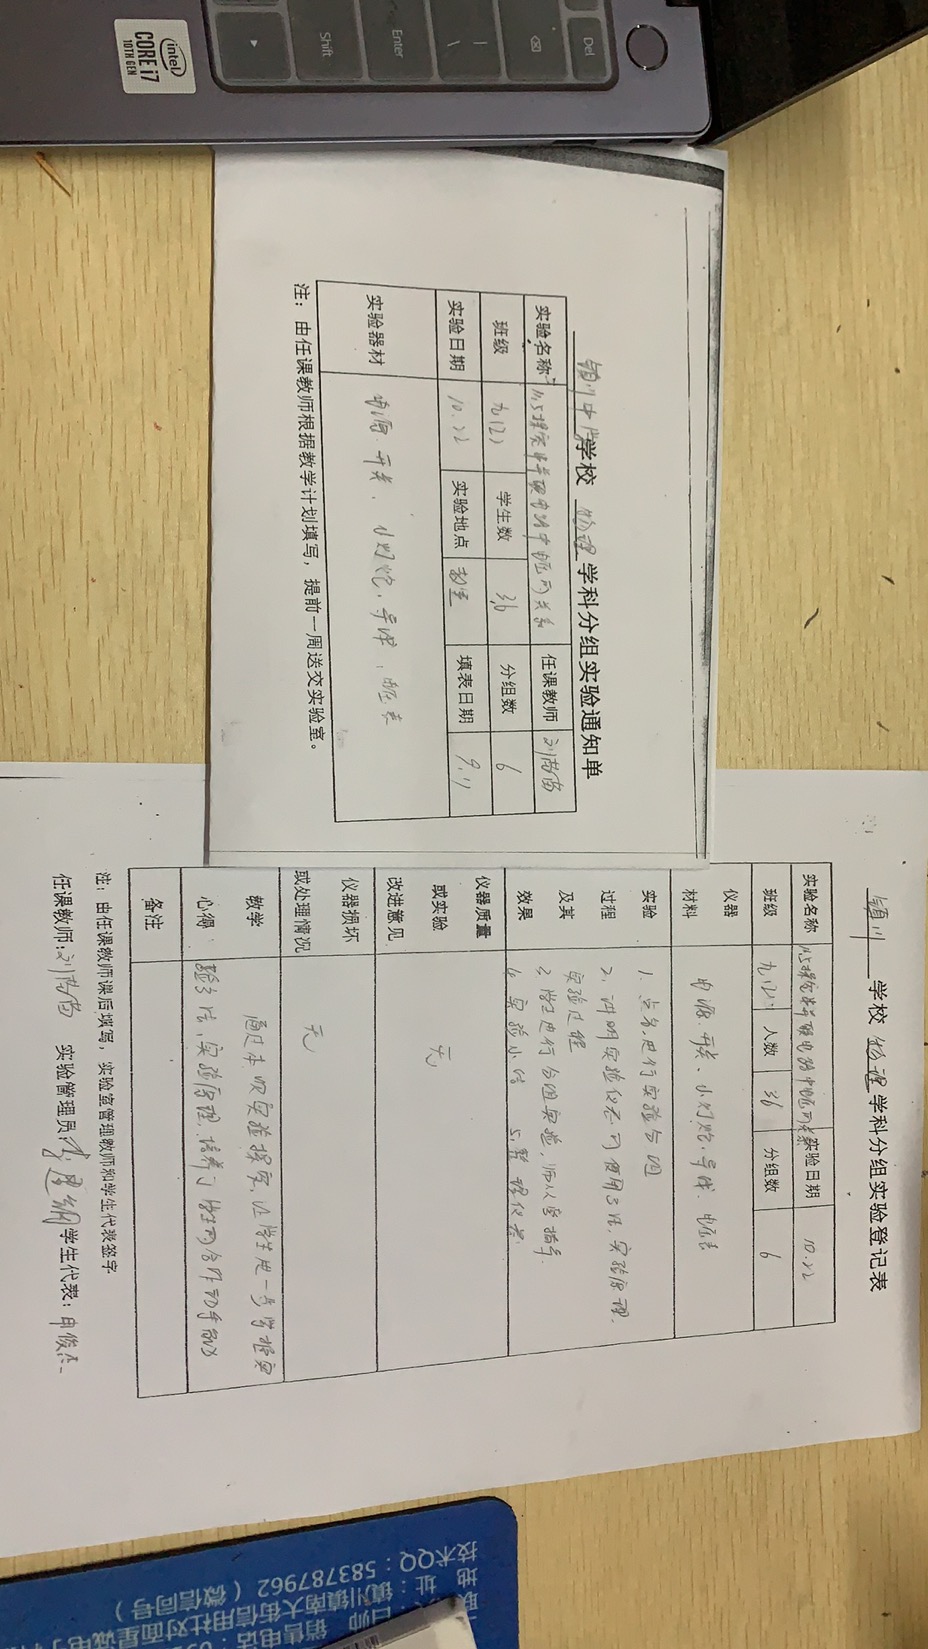 Del
Enter
Shift
intel
CORE i7
10TH GEN
学校 物理 学科分组实验通知单
实验名称 串并联电路中电压的关系 任课教师
班级 九(2) 学生数 36 分组数 6
实验日期 10.22 实验地点 填表日期
实验器材 电源、开关、小灯泡、导线、电压表
注：由任课教师根据教学计划填写，提前一周送交实验室。
学校 物理 学科分组实验登记表
实验名称 串并联电路中电压的关系 实验日期 10.22
班级 九(2) 人数 36 分组数 6
仪器材料 电源、开关、小灯泡、导线、电压表
实验过程及其效果
1、点名，进行实验分组
2、讲明实验仪器的使用方法，实验原理，
实验过程
3、学生进行分组实验，师从旁指导.
4、实验小结 5、整理仪器
仪器质量或实验改进意见 无
仪器损坏或处理情况 无
教学心得 通过本次实验探究，让学生进一步掌握实
验方法，实验原理，培养了学生的合作动手能力
备注
注：由任课教师课后填写，实验室管理教师和学生代表签字
任课教师： 实验管理员： 学生代表：申俊杰
销售电话：
镇川镇南大街信用社对面星诚电子
技术QQ：583787962（微信同号）